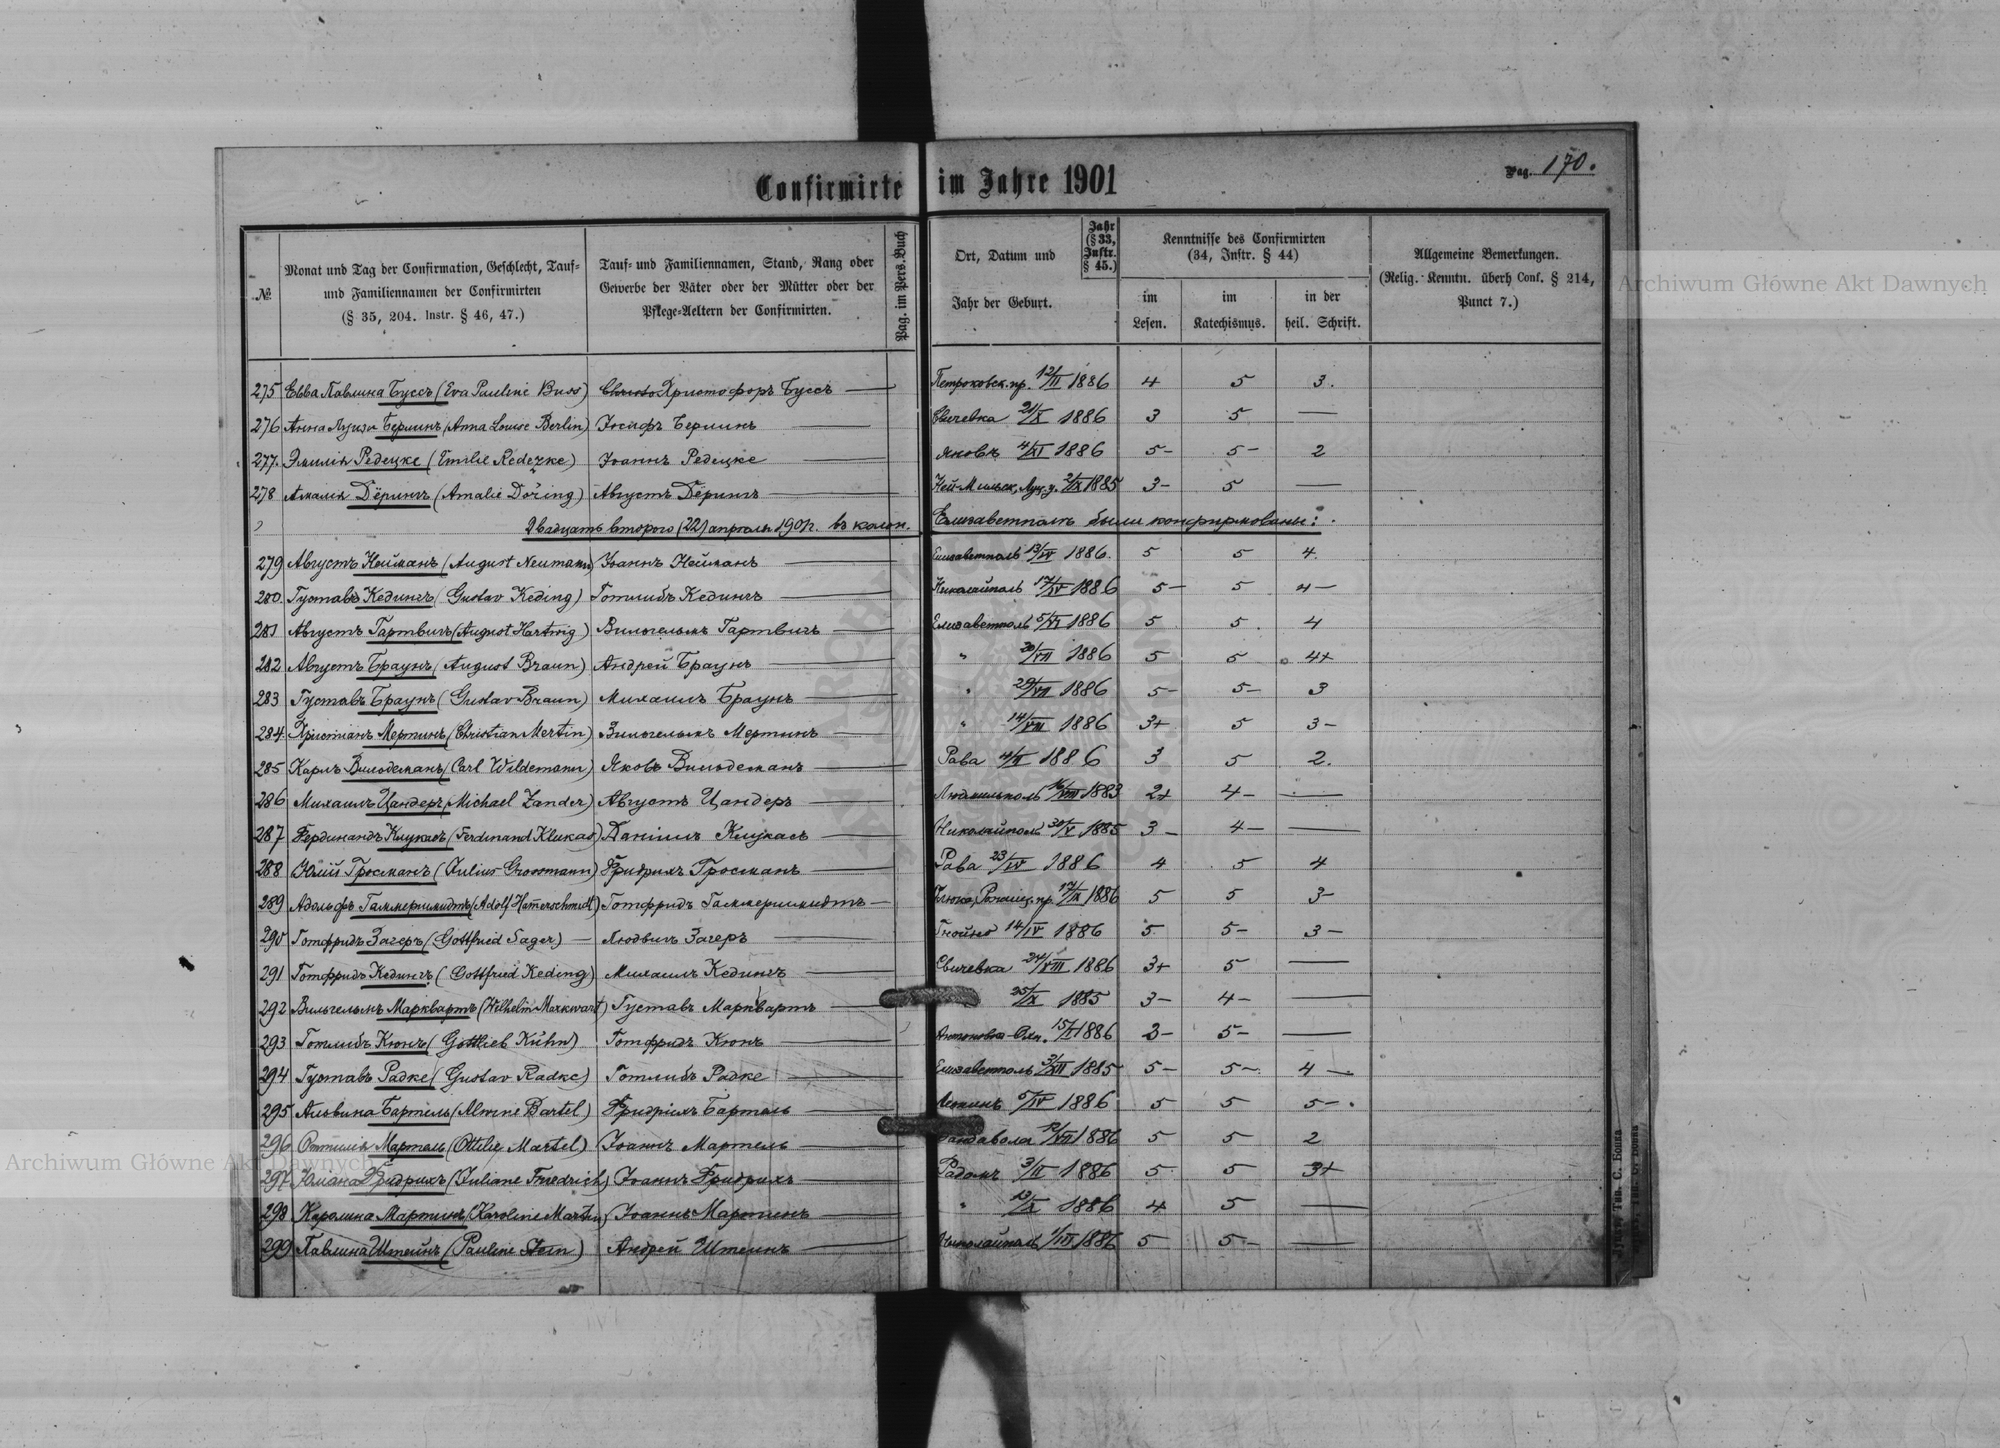 Confirmirte im Jahre 1901
Pag. 170.
№
Monat und Tag der Confirmation, Geschlecht, Tauf= und Familiennamen der Confirmirten (§ 35, 204. Instr. § 46, 47.)
Tauf= und Familiennamen, Stand, Rang oder Gewerbe der Väter oder der Mütter oder der Pflege=Aeltern der Confirmirten.
Pag. im Pers. Buch
Ort, Datum und Jahr der Geburt.
Jahr (§ 33, Instr. § 45.)
Kenntnisse des Confirmirten (34, Instr. § 44)
im Lesen.
im Katechismus.
in der heil. Schrift.
Allgemeine Bemerkungen. (Relig. Kenntn. überh Conf. § 214, Punct 7.)
275 Евва Павлина Буссъ (Eva Pauline Buss) Христофоръ Буссъ Петроковск. пр. 12/II 1886 4 5 3.
276 Анна Луиза Берлинъ (Anna Louise Berlin) Іосифъ Берлинъ Евичевка 21/X 1886 3 5 —
277. Эмилія Редецке (Emilie Redezke) Іоаннъ Редецке Яновк 4/XI 1886 5- 5- 2
278 Амалія Дёрингъ (Amalie Döring) Августъ Дёрингъ 1885 3- 5 —
Двадцать второго (22) апрѣля 1901 г. въ колон. Елизаветполь были конфирмованы:
279 Августъ Нейманъ (August Neumann) Іоаннъ Нейманъ Елизаветполь 13/IV 1886. 5 5 4.
280. Густавъ Кедингъ (Gustav Keding) Готлибъ Кедингъ Николайполь 17/IV 1886 5- 5 4-
281 Августъ Гартвигъ (August Hartwig) Вильгельмъ Гартвигъ Елизаветполь 5/VI 1886 5 5. 4
282 Августъ Браунъ (August Braun) Андрей Браунъ " 20/VII 1886 5 5 4+
283 Густавъ Браунъ (Gustav Braun) Михаилъ Браунъ " 29/VII 1886 5- 5- 3
284. Христіанъ Мертинъ (Christian Mertin) Вильгельмъ Мертинъ " 14/VIII 1886 3+ 5 3-
285 Карлъ Вильдеманъ (Carl Wildemann) Яковъ Вильдеманъ Рава 4/II 1886 3 5 2.
286 Михаилъ Цандеръ (Michael Zander) Августъ Цандеръ Людмильполь 1883 2+ 4- —
287 Фердинандъ Клукасъ (Ferdinand Klukas) Даніилъ Клукасъ Николайполь 30/V 1885 3- 4- —
288 Юлій Гросманъ (Julius Grossmann) Фридрихъ Гросманъ Рава 23/IV 1886 4 5 4
289 Адольфъ Гаммершмидтъ (Adolf Hamerschmidt) Готфридъ Гаммершмидтъ 17/IX 1886 5 5 3-
290 Готфридъ Загеръ (Gottfried Sager) Людвигъ Загеръ Гнойно 14/IV 1886 5 5- 3-
291 Готфридъ Кедингъ (Gottfried Keding) Михаилъ Кедингъ Евичевка 24/VIII 1886 3+ 5 —
292 Вильгельмъ Марквартъ (Wilhelm Markwart) Густавъ Марквартъ 25/IX 1885 3- 4- —
293 Готлибъ Кюнъ (Gottlieb Kühn) Готфридъ Кюнъ Антоновка 1886 3- 5- —
294 Густавъ Радке (Gustav Radke) Готлибъ Радке Елизаветполь 3/XII 1885 5- 5- 4-
295 Альвина Бартель (Alwine Bartel) Фридрихъ Бартель 1886 5 5 5-.
296 Оттилія Мартель (Ottilie Martel) Іоаннъ Мартель 1886 5 5 2
297. Юліана Фридрихъ (Juliane Friedrich) Іоаннъ Фридрихъ Радомъ 3/II 1886 5 5 3+
298 Каролина Мартинъ (Karoline Martin) Іоаннъ Мартинъ " 13/X 1886 4 5 —
299 Павлина Штейнъ (Pauline Stein) Андрей Штейнъ Николайполь 1886 5 5- —
Archiwum Główne Akt Dawnych
Archiwum Główne Akt Dawnych